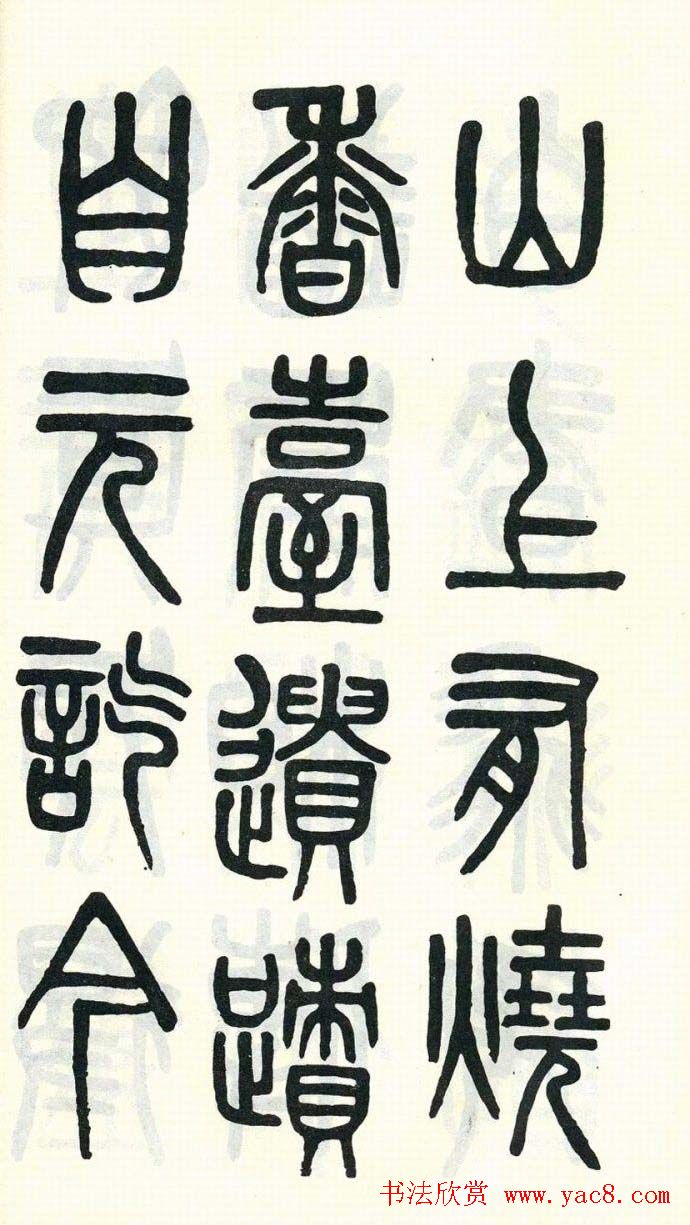 山上有燒
香臺遺蹟
自元訖今
书法欣赏 www.yac8.com